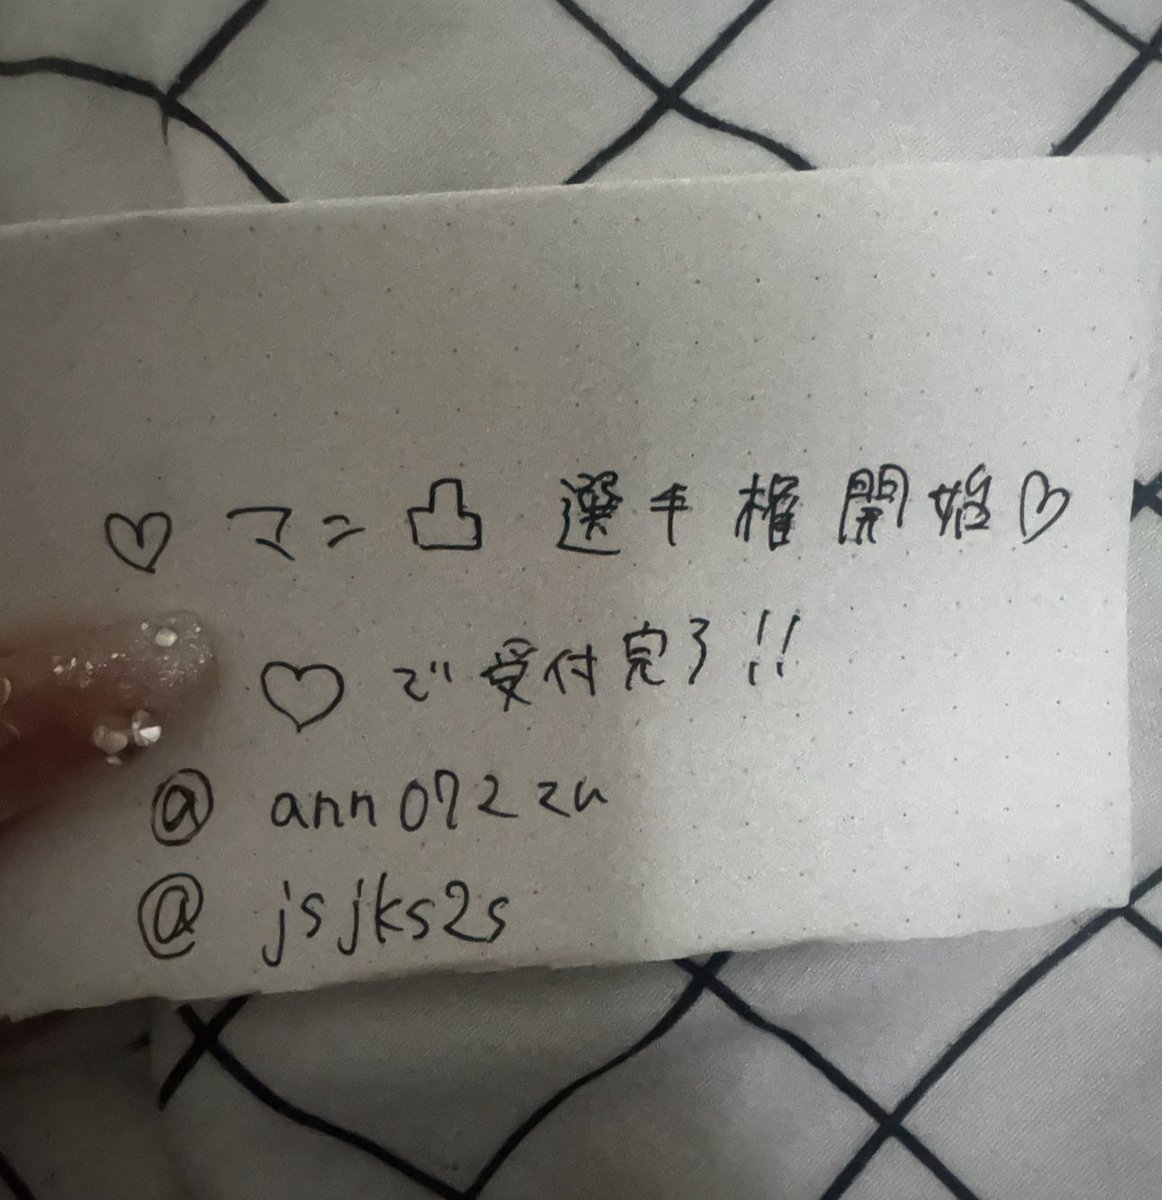 ♡マン凸選手権開始♡
♡で受付完了!!
@ann0722u
@jsjks2s